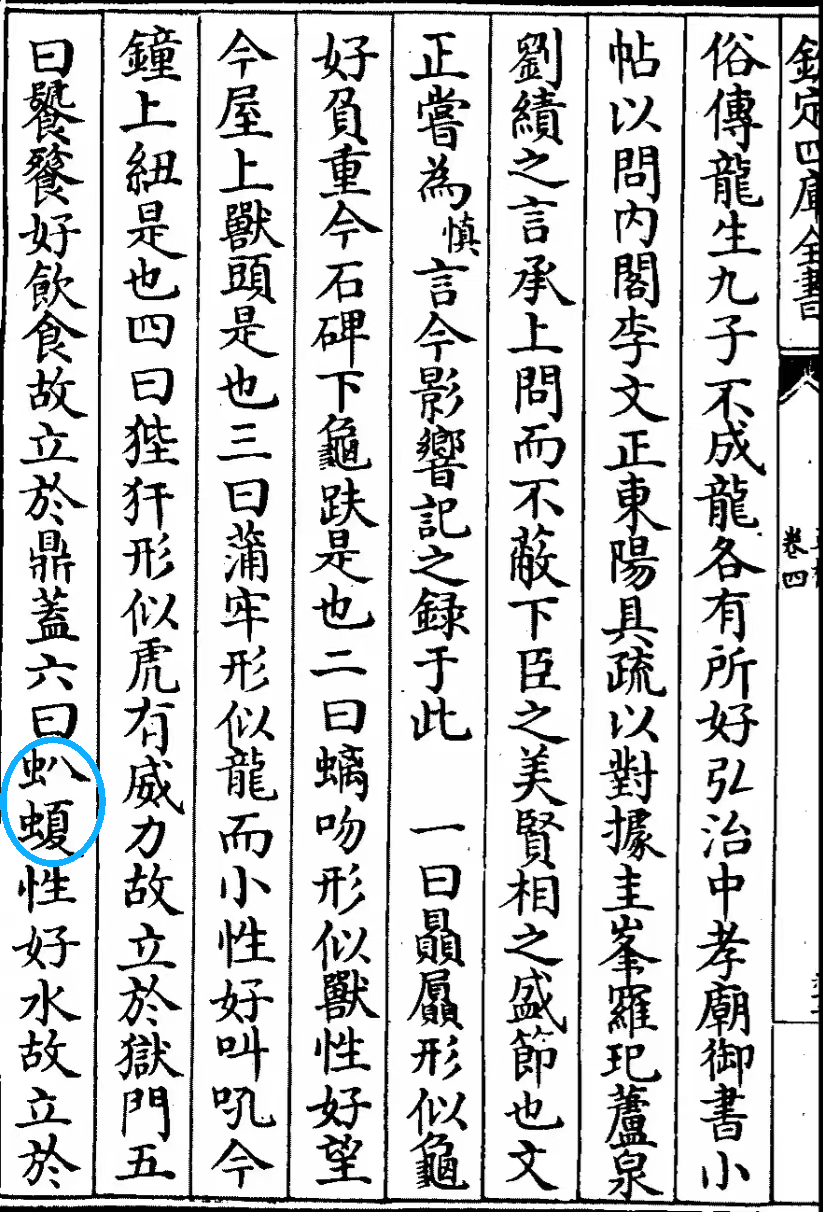 欽定四庫全書
卷四
俗傳龍生九子不成龍各有所好弘治中孝廟御書小
帖以問内閣李文正東陽具疏以對據圭峯羅玘蘆泉
劉績之言承上問而不蔽下臣之美賢相之盛節也文
正嘗為慎言今影響記之録于此　一曰贔屭形似龜
好負重今石碑下龜趺是也二曰螭吻形似獸性好望
今屋上獸頭是也三曰蒲牢形似龍而小性好叫吼今
鐘上紐是也四曰狴犴形似虎有威力故立於獄門五
曰饕餮好飲食故立於鼎蓋六曰𧈢𧏡性好水故立於